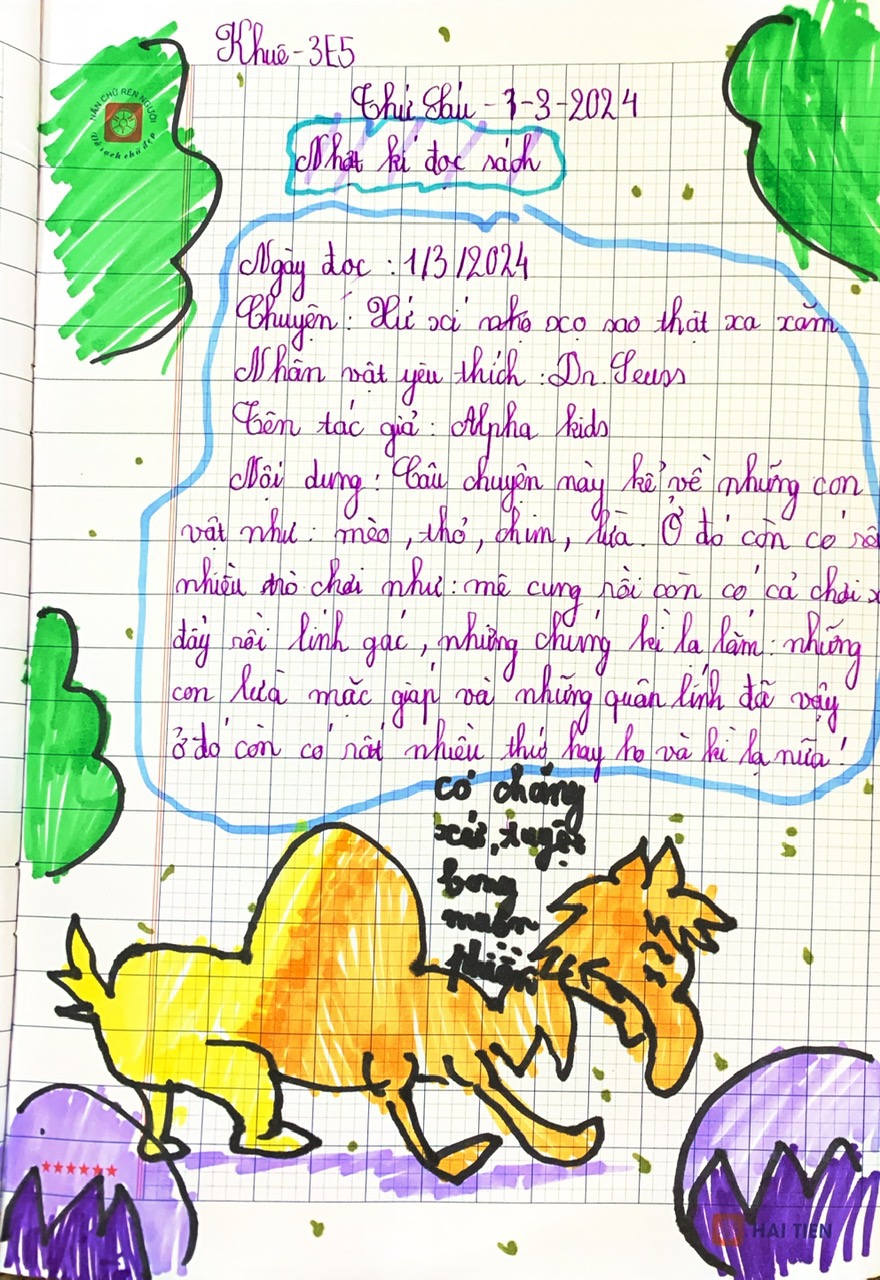 Khuê - 3E5
NẮN CHỮ RÈN NGƯỜI
Vở sạch chữ đẹp
Thứ Sáu - 1-3-2024
Nhật kí đọc sách
Ngày đọc : 1/3/2024
Chuyện : Xứ xỉ nhỏ xọ sao thật xa xăm
Nhân vật yêu thích : Dr. Seuss
Tên tác giả : Alpha kids
Nội dung : Câu chuyện này kể về những con
vật như : mèo, thỏ, chim, lừa. Ở đó còn có
nhiều trò chơi như : mê cung rồi còn có cả chơi
đẩy rồi lính gác, những chúng kì lạ lắm : những
con lừa mặc giáp và những quân lính đã vậy
ở đó còn có rất nhiều thứ hay ho và kì lạ nữa !
có chăng
bong
muôn
HAI TIEN